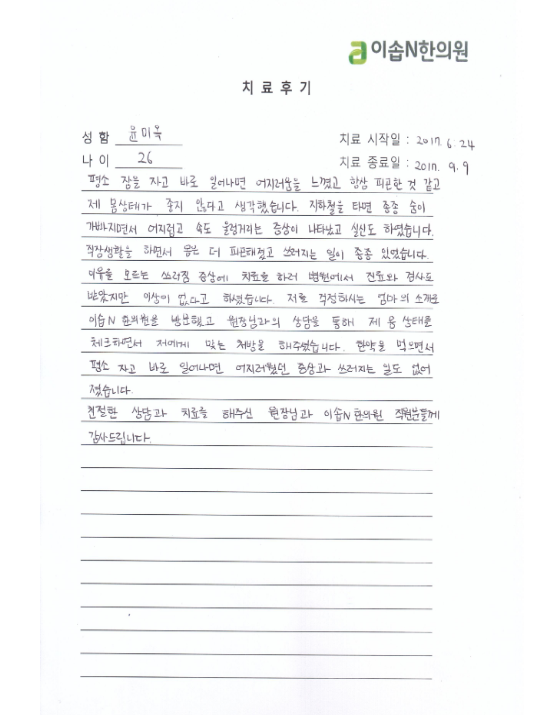 이솝N한의원
치료후기
성 함 윤미옥
치료 시작일 : 2017. 6. 24
나 이 26
치료 종료일 : 2017. 9. 9
평소 잠을 자고 바로 일어나면 어지러움을 느꼈고 항상 피곤한 것 같고
제 몸상태가 좋지 않다고 생각했습니다. 지하철을 타면 종종 숨이
가빠지면서 어지럽고 속도 울렁거리는 증상이 나타났고 실신도 하였습니다.
직장생활을 하면서 몸은 더 피곤해졌고 쓰러지는 일이 종종 있었습니다.
이유를 모르는 쓰러짐 증상에 치료를 하러 병원에서 진료와 검사도
받았지만 이상이 없다고 하셨습니다. 저를 걱정하시는 엄마의 소개로
이솝N한의원을 방문했고 원장님과의 상담을 통해 제 몸 상태를
체크하면서 저에게 맞는 처방을 해주셨습니다. 한약을 먹으면서
평소 자고 바로 일어나면 어지러웠던 증상과 쓰러지는 일도 없어
졌습니다.
친절한 상담과 치료를 해주신 원장님과 이솝N한의원 직원분들께
감사드립니다.